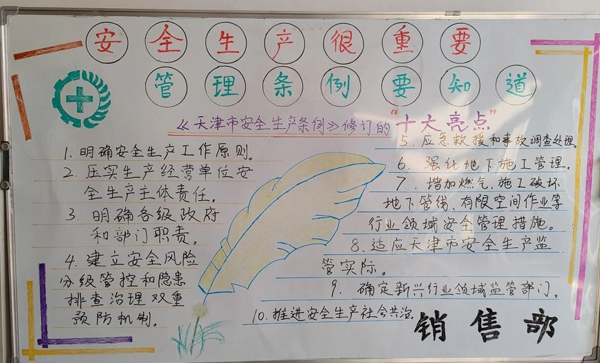 安全生产很重要
管理条例要知道
《天津市安全生产条例》修订的“十大亮点”
1. 明确安全生产工作原则。
2. 压实生产经营单位安
全生产主体责任。
3 明确各级政府
和部门职责。
4. 建立安全风险
分级管控和隐患
排查治理双重
预防机制。
5、应急救援和事故调查处理。
6、强化地下施工管理。
7、增加燃气、施工破坏
地下管线、有限空间作业等
行业领域安全管理措施。
8.适应天津市安全生产监
管实际。
9. 确定新兴行业领域监管部门。
10.推进安全生产社会共治。
销售部